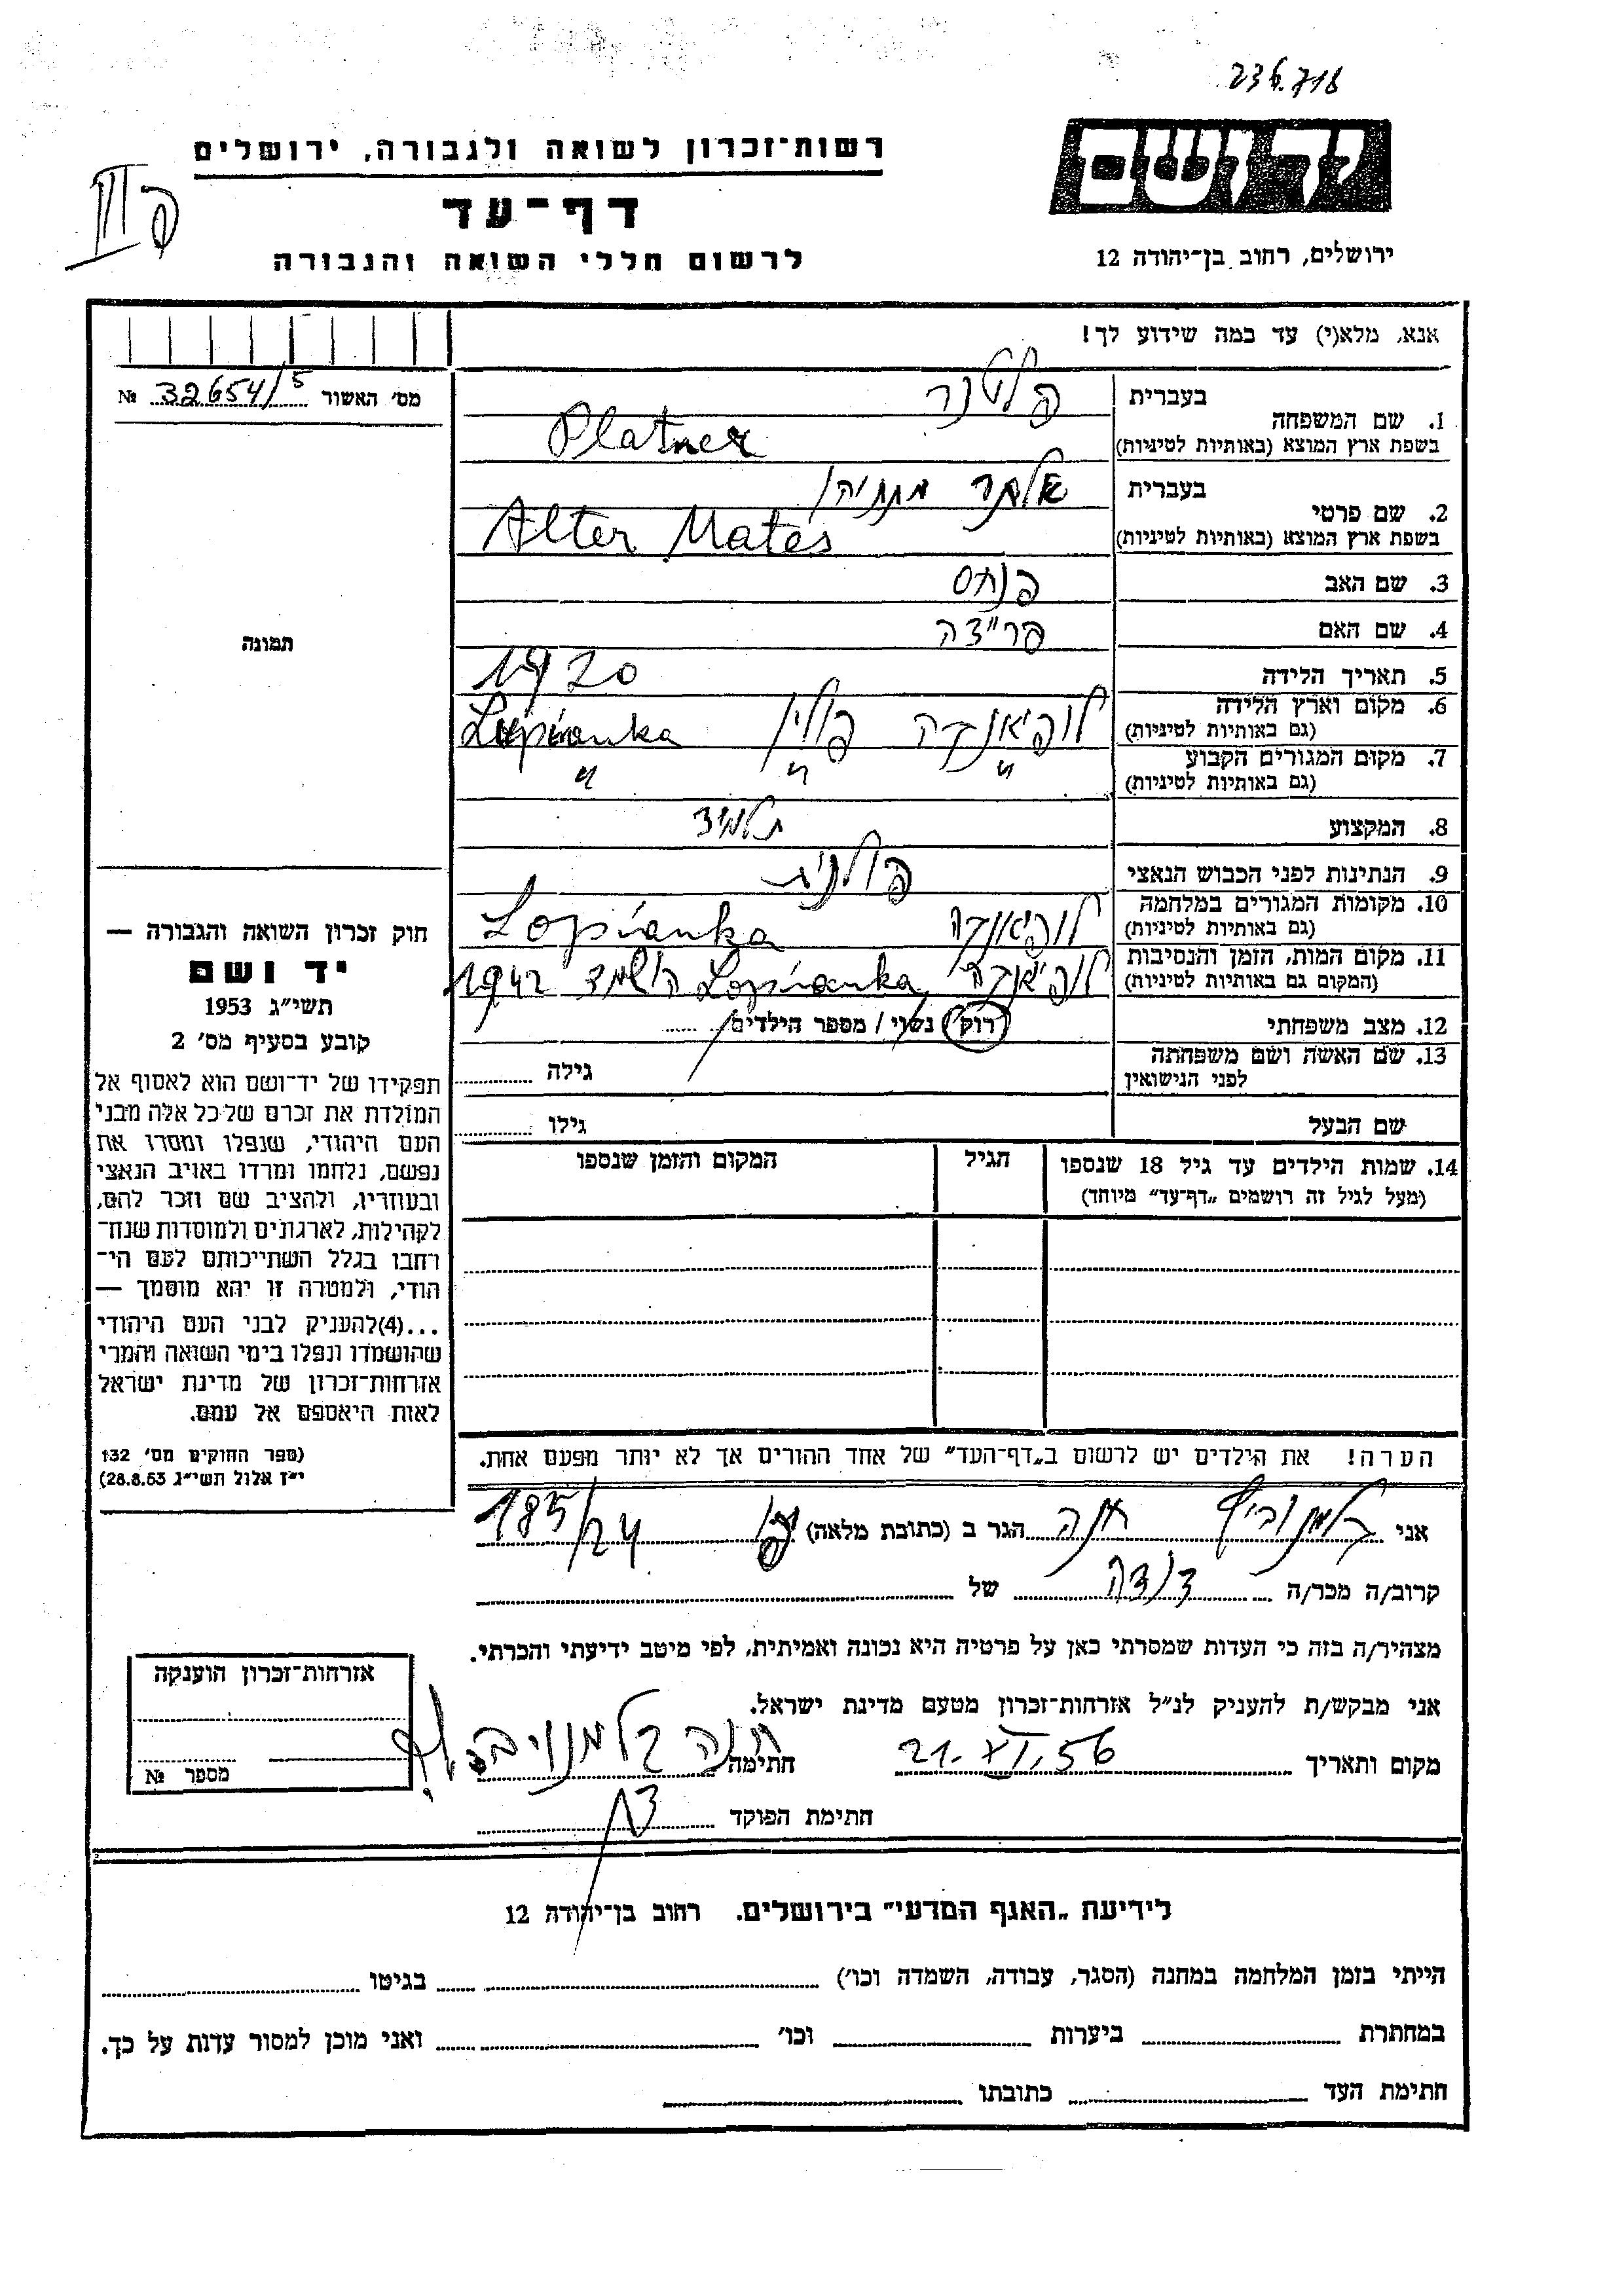 236.718
יד ושם
רשות־זכרון לשואה ולגבורה, ירושלים
דף־עד
לרשום חללי השואה והגבורה
ירושלים, רחוב בן־יהודה 12
אנא, מלא(י) עד כמה שידוע לך!
מס' האשור № 32654/5
תמונה
1. שם המשפחה בעברית פלטנר
בשפת ארץ המוצא (באותיות לטיניות) Platner
2. שם פרטי בעברית אלתר מתתיהו
בשפת ארץ המוצא (באותיות לטיניות) Alter Mates
3. שם האב פנחס
4. שם האם פריידה
5. תאריך הלידה 1920
6. מקום וארץ הלידה (גם באותיות לטיניות) לופיאנקה פולין Lopianka
7. מקום המגורים הקבוע (גם באותיות לטיניות) " " "
8. המקצוע תלמיד
9. הנתינות לפני הכבוש הנאצי פולנית
10. מקומות המגורים במלחמה (גם באותיות לטיניות) לופיאנקה Lopianka
11. מקום המות, הזמן והנסיבות (המקום גם באותיות לטיניות) לופיאנקה Lopianka הושמד 1942
12. מצב משפחתי רוק / נשוי / מספר הילדים
13. שם האשה ושם משפחתה לפני הנישואין גילה
שם הבעל גילו
14. שמות הילדים עד גיל 18 שנספו הגיל המקום והזמן שנספו
(מעל לגיל זה רושמים „דף־עד" מיוחד)
הערה! את הילדים יש לרשום ב„דף־העד" של אחד ההורים אך לא יותר מפעם אחת.
חוק זכרון השואה והגבורה —
יד ושם
תשי"ג 1953
קובע בסעיף מס' 2
תפקידו של יד־ושם הוא לאסוף אל
המולדת את זכרם של כל אלה מבני
העם היהודי, שנפלו ומסרו את
נפשם, נלחמו ומרדו באויב הנאצי
ובעוזריו, ולהציב שם וזכר להם,
לקהילות, לארגונים ולמוסדות שנח־
רחבו בגלל השתייכותם לעם הי־
הודי, ולמטרה זו יהא מוסמך —
...(4)להעניק לבני העם היהודי
שהושמדו ונפלו בימי השואה והמרי
אזרחות־זכרון של מדינת ישראל
לאות היאספם אל עמם.
(ספר החוקים מס' 132
י"ז אלול תשי"ג 28.8.53)
אני קלמנוביץ חנה הגר ב (כתובת מלאה) 185/24
קרוב/ה מכר/ה דודה של
מצהיר/ה בזה כי העדות שמסרתי כאן על פרטיה היא נכונה ואמיתית, לפי מיטב ידיעתי והכרתי.
אני מבקש/ת להעניק לנ"ל אזרחות־זכרון מטעם מדינת ישראל.
מקום ותאריך 21.XI.56 חתימה חנה קלמנוביץ
חתימת הפוקד
אזרחות־זכרון הוענקה
מספר №
לידיעת „האגף המדעי" בירושלים. רחוב בן־יהודה 12
הייתי בזמן המלחמה במחנה (הסגר, עבודה, השמדה וכו') בגיטו
במחתרת ביערות וכו' ואני מוכן למסור עדות על כך.
חתימת העד כתובתו